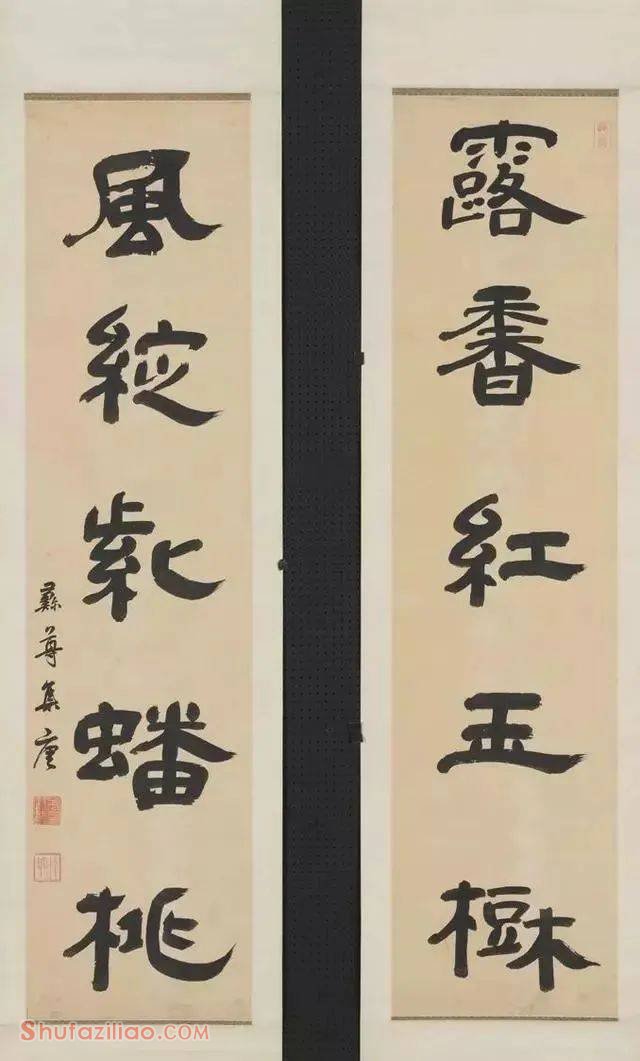 露香紅玉樹
風綻紫蟠桃
彝尊集唐
Shufaziliao.COM